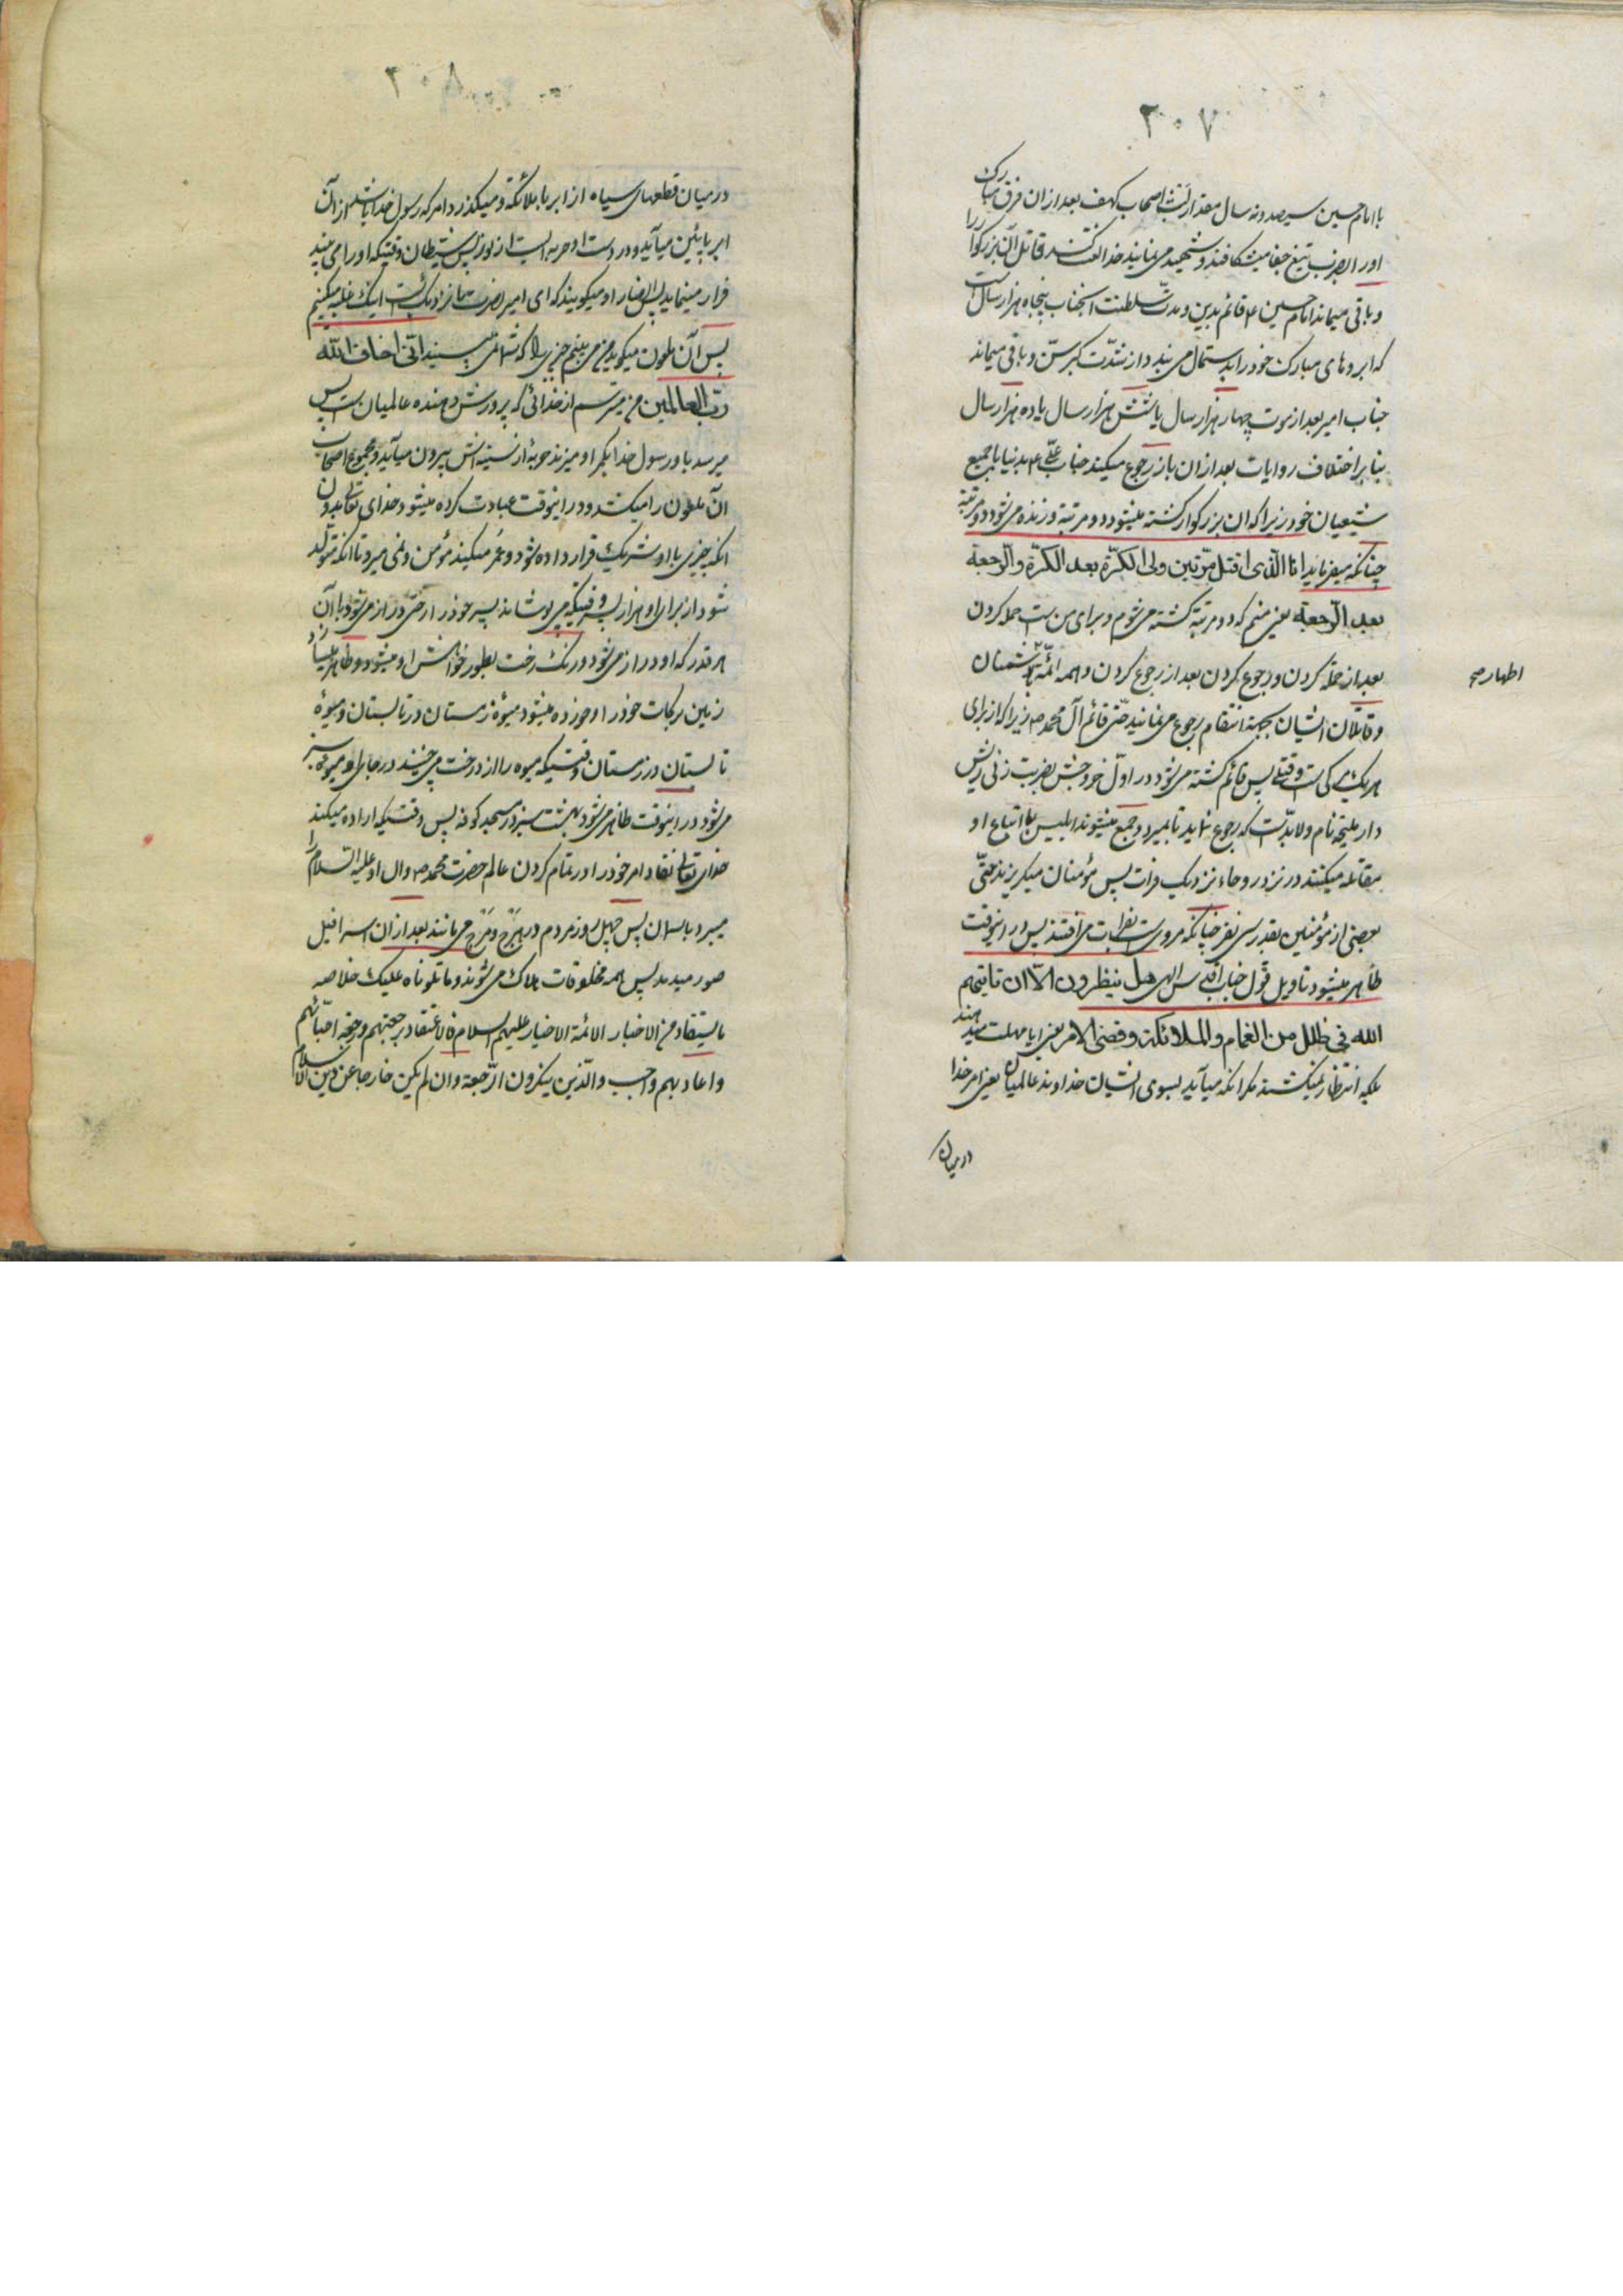 ۲۰۷
با امام حسین سیصد و نه سال مقدار لبث اصحاب کهف بعد از ان فرق مبارک
او را بضرب تیغ جفا میشکافند و شهید می نمایند خدا لعنت کند قاتل آن بزرکوار را
و باقی میماند امام حسین ع قائم بدین و مدت سلطنت انجناب پنجاه هزار سال است
که ابروهای مبارک خود را بدستمال می بندد از شدّت کبر سنّ و باقی میماند
جناب امیر بعد از موت چهار هزار سال یا شش هزار سال یا ده هزار سال
بنا بر اختلاف روایات بعد از ان باز رجوع میکند جناب علی ع بدنیا با جمیع
شیعیان خود زیرا که ان بزرکوار کشته میشود دو مرتبه و زنده می شود دو مرتبه
چنانکه میفرماید انا الّذی اقتل مرّتین ولی الکرّة بعد الکرّة والرّجعة
بعد الرّجعة یعنی منم که دو مرتبه کشته می شوم و برای من است حمله کردن
بعد از حمله کردن و رجوع کردن بعد از رجوع کردن و همه ائمّه با دشمنان
اطهار صح
و قاتلان ایشان بجهة انتقام رجوع می نمایند حتّی قائم آل محمد ص زیرا که از برای
هر یک مرکی است و قتلی پس قائم کشته می شود در اوّل خروجش بضربت زنی ریش
دار ملیحه نام و لابدّ است که رجوع نماید تا بمیرد و جمع میشوند ابلیس با اتباع او
مقاتله میکنند در نزد روحاء نزدیک فرات پس مؤمنان میکریزند حتّی
بعضی از مؤمنین بقدر سی نفر چنانکه مروی است بفرات می افتند پس در اینوقت
ظاهر میشود تاویل قول جناب اقدس الهی هل ینظرون الّا ان تاتیهم
الله فی ظلل من الغمام والملائکة وقضی الامر یعنی ایا مهلت میدهند
بلکه انتظار نمیکشند مکر انکه میآید بسوی ایشان خداوند عالمیان یعنی امر خدا
در میان
۲۰۸
در میان قطعهای سیاه از ابر با ملائکه و میکذرد امر که رسول خدا باشد از آن
ابر پائین میآید و در دست او حربه ایست از نور پس شیطان وقتیکه او را می بیند
فرار مینماید پس انصار او میکویند که ای امیر نصرت ما نزدیک است اینک غلبه میکنیم
پس آن ملعون میکوید من می بینم چیزی را که شما نمی بینید انّی اخاف الله
ربّ العالمین من میترسم از خدائی که پرورش دهنده عالمیان است پس
میرسد باو رسول خدا بکمر او میزند حربه از سینه اش بیرون میآید و مجموع اصحاب
آن ملعون را میکشد و در اینوقت عبادت کرده میشود خدای تعالی بدون
انکه چیزی با او شریک قرار داده شود و عمر میکند مؤمن و نمی میرد تا انکه متولّد
شود از برای او هزار پسر وقتیکه می پوشاند پسر خود را رختی دراز می شود با آن
هر قدر که او دراز می شود و رنک رخت بطور خواهش او میشود و ظاهر میسازد
زمین برکات خود را و خورده میشود میوهٔ زمستان در تابستان و میوهٔ
تابستان در زمستان وقتیکه میوه را از درخت می چینند در جایش میوه سبز
می شود در اینوقت ظاهر می شود بهشت سبز در مسجد کوفه پس وقتیکه اراده میکند
خدای تعالی نفاد امر خود را در تمام کردن عالم حضرت محمد ص و ال او علیه السلام را
میبرد باسمان پس چهل روز مردم در هرج و مرج می مانند بعد از ان اسرافیل
صور میدمد پس همه مخلوقات هلاک می شوند و ما تلوناه علیک خلاصه
ما یستفاد من الاخبار الائمة الاخیار علیهم السلام فالاعتقاد برجعتهم و رجعة احبّائهم
و اعادیهم واجب والّذین ینکرون الرّجعة وان لم یکن خارجا عن دین الاسلام